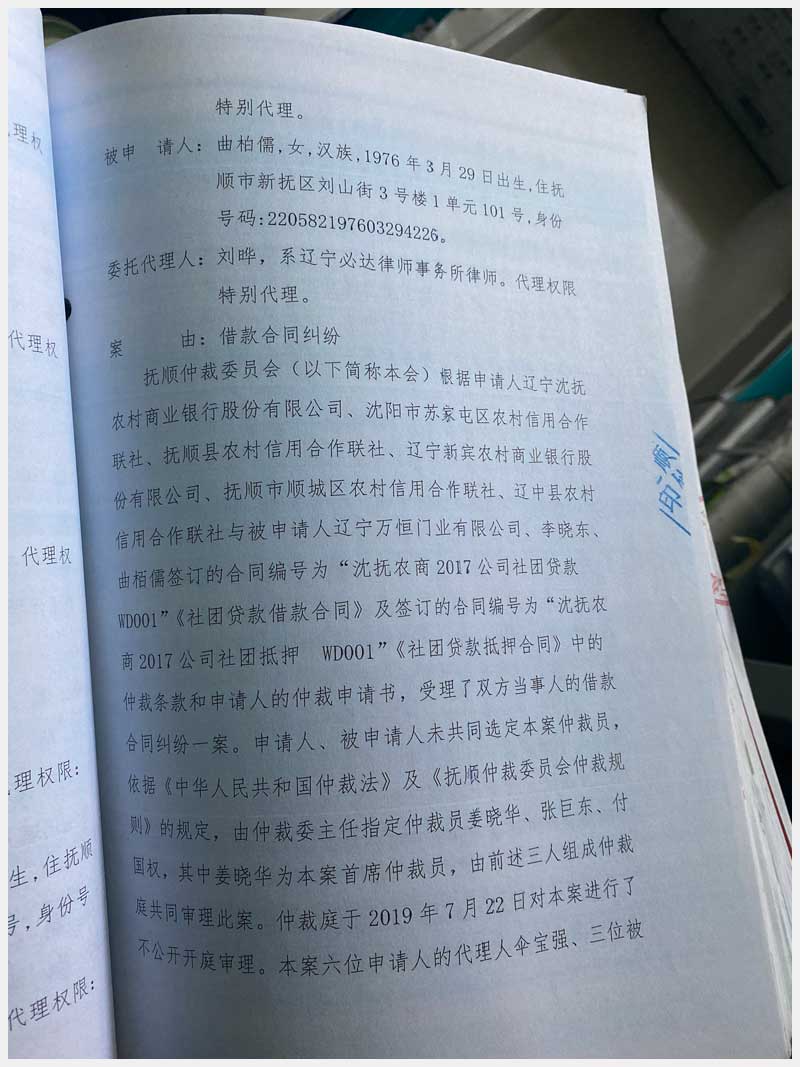 理权
代理权
代理权
理权限:
生,住抚顺
号,身份号
代理权限:
特别代理。
被申 请人: 曲柏儒,女,汉族,1976年3月29日出生,住抚
顺市新抚区刘山街3号楼1单元101号,身份
号码:220582197603294226。
委托代理人: 刘晔,系辽宁必达律师事务所律师。代理权限
特别代理。
案 由: 借款合同纠纷
抚顺仲裁委员会(以下简称本会)根据申请人辽宁沈抚
农村商业银行股份有限公司、沈阳市苏家屯区农村信用合作
联社、抚顺县农村信用合作联社、辽宁新宾农村商业银行股
份有限公司、抚顺市顺城区农村信用合作联社、辽中县农村
信用合作联社与被申请人辽宁万恒门业有限公司、李晓东、
曲栢儒签订的合同编号为“沈抚农商2017公司社团贷款
WD001”《社团贷款借款合同》及签订的合同编号为“沈抚农
商2017公司社团抵押 WD001”《社团贷款抵押合同》中的
仲裁条款和申请人的仲裁申请书,受理了双方当事人的借款
合同纠纷一案。申请人、被申请人未共同选定本案仲裁员,
依据《中华人民共和国仲裁法》及《抚顺仲裁委员会仲裁规
则》的规定,由仲裁委主任指定仲裁员姜晓华、张巨东、付
国权,其中姜晓华为本案首席仲裁员,由前述三人组成仲裁
庭共同审理此案。仲裁庭于2019年7月22日对本案进行了
不公开开庭审理。本案六位申请人的代理人伞宝强、三位被